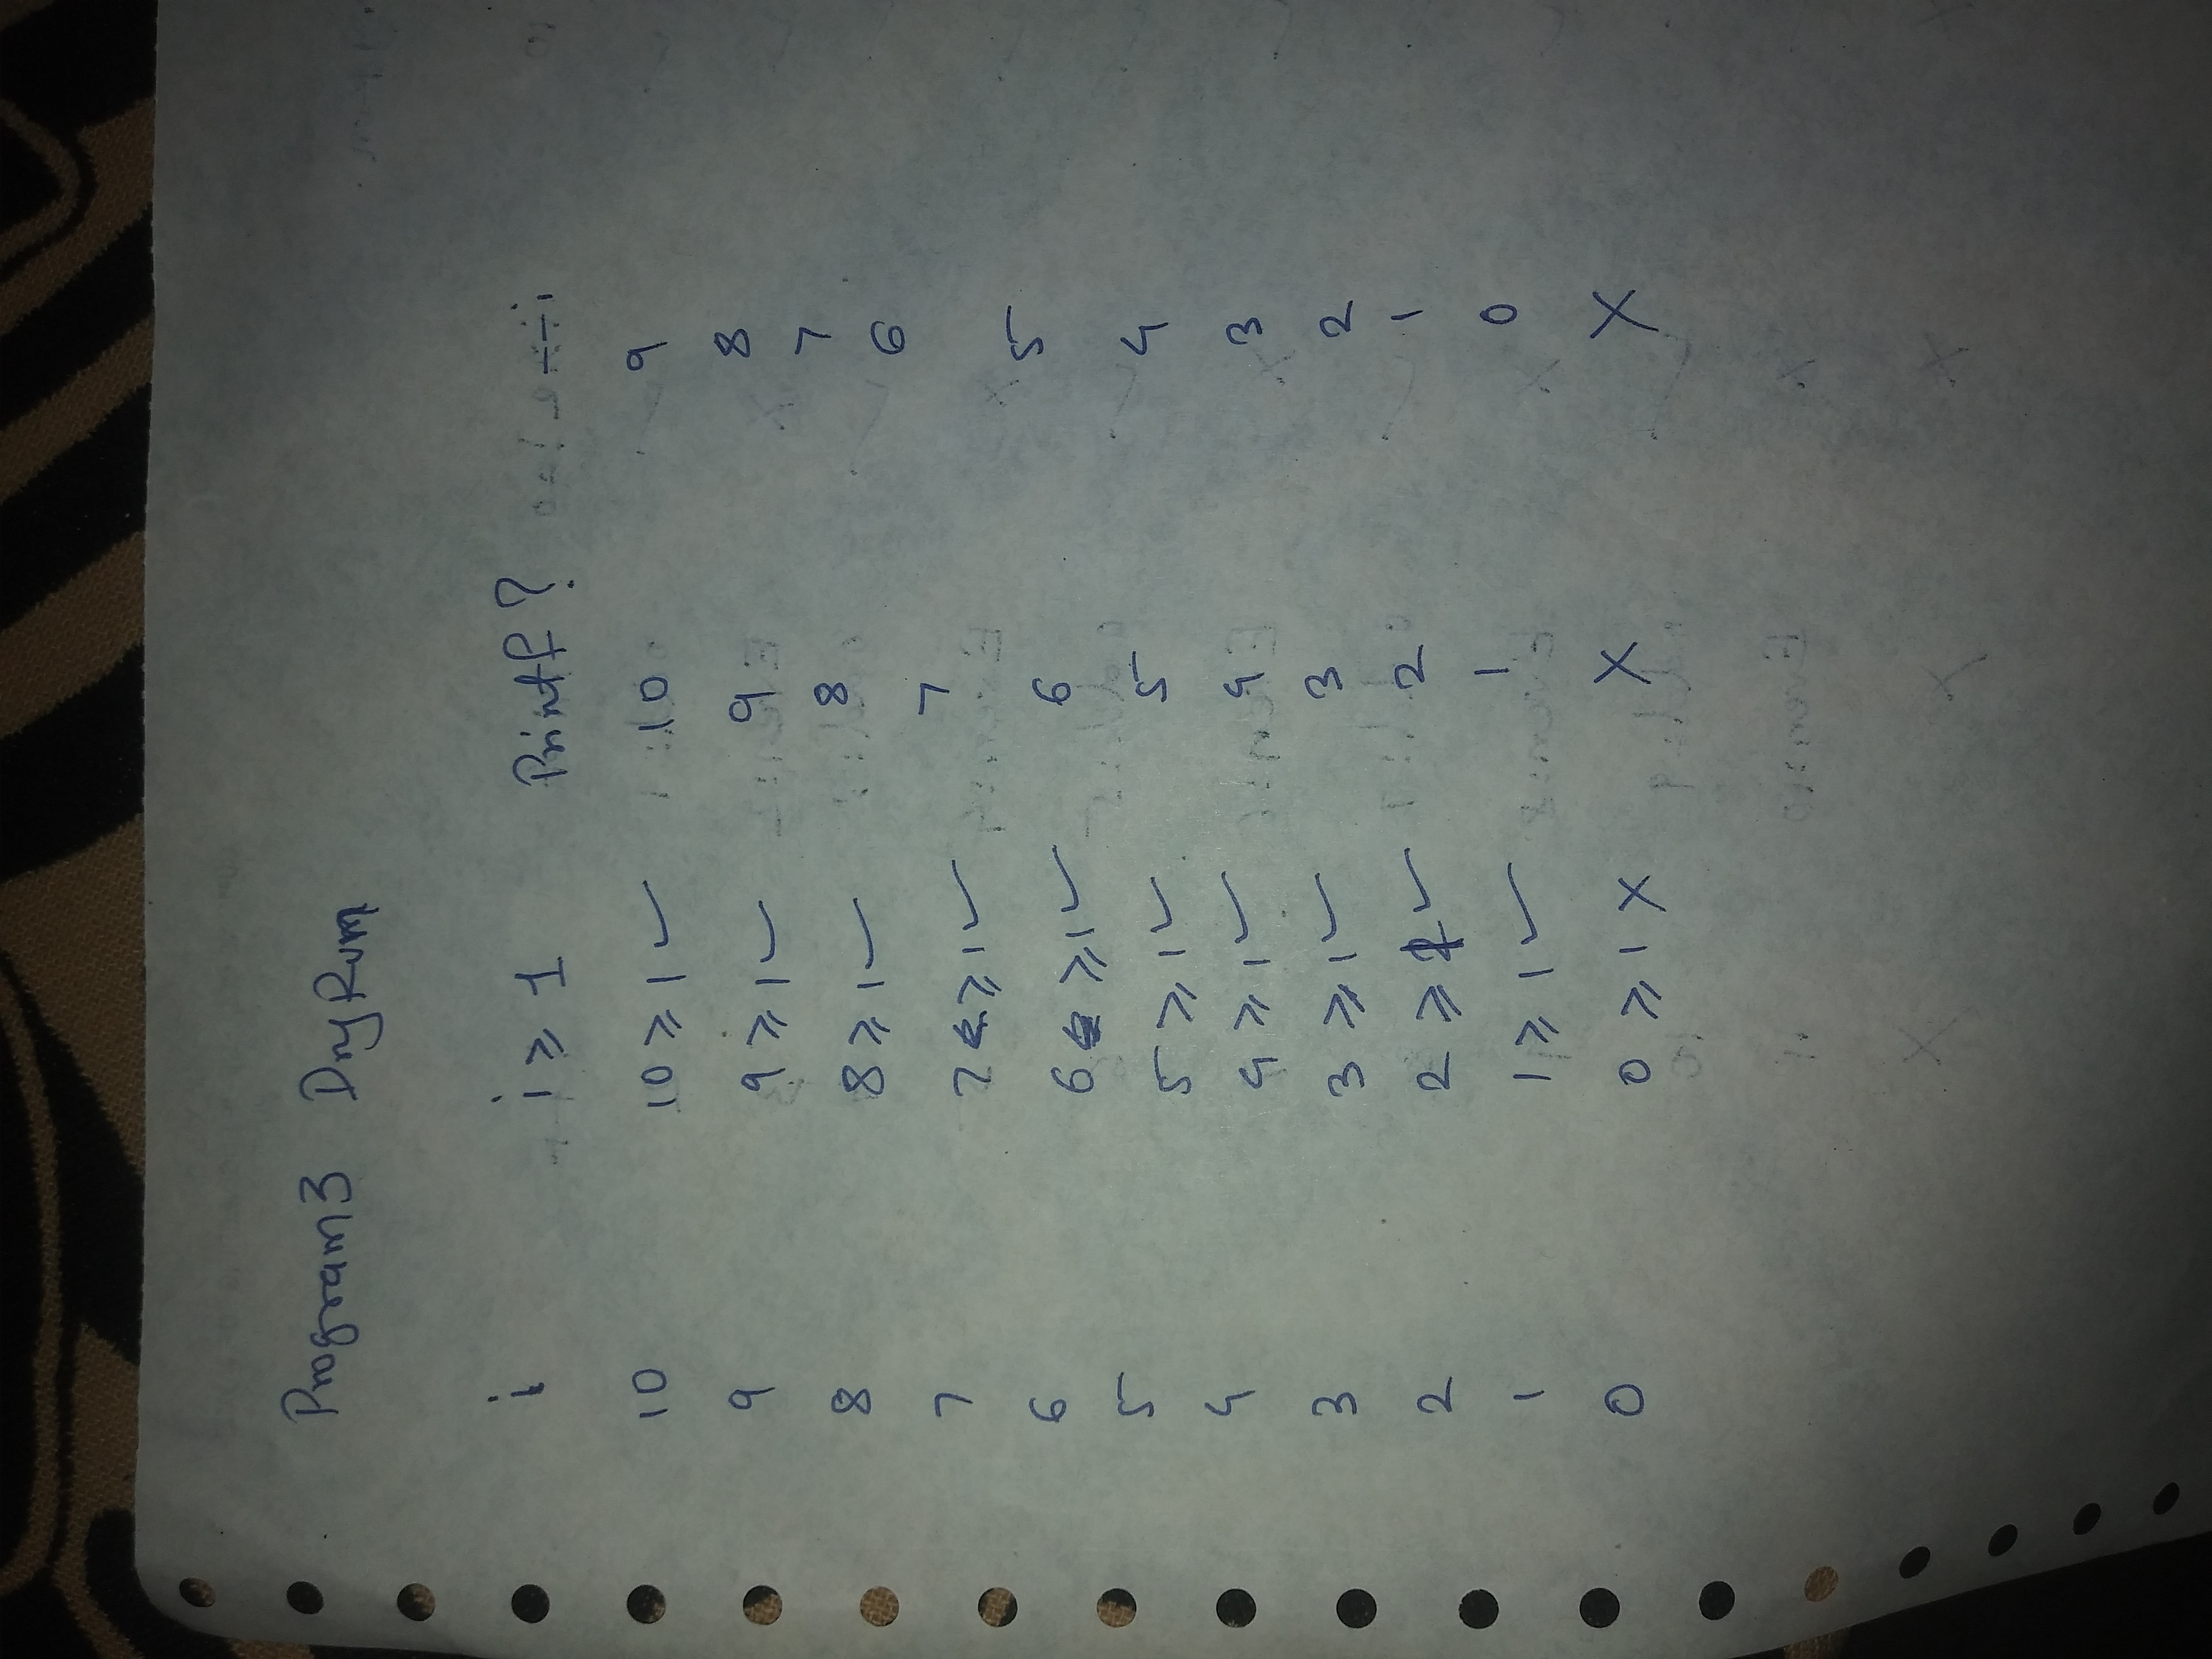 Program3 Dry Run
i i ⩾ 1 Printf? --i
10 10 ⩾ 1 ✓ 10 9
9 9 ⩾ 1 ✓ 9 8
8 8 ⩾ 1 ✓ 8 7
7 7 ⩾ 1 ✓ 7 6
6 6 ⩾ 1 ✓ 6 5
5 5 ⩾ 1 ✓ 5 4
4 4 ⩾ 1 ✓ 4 3
3 3 ⩾ 1 ✓ 3 2
2 2 ⩾ 1 ✓ 2 1
1 1 ⩾ 1 ✓ 1 0
0 0 ⩾ 1 X X X